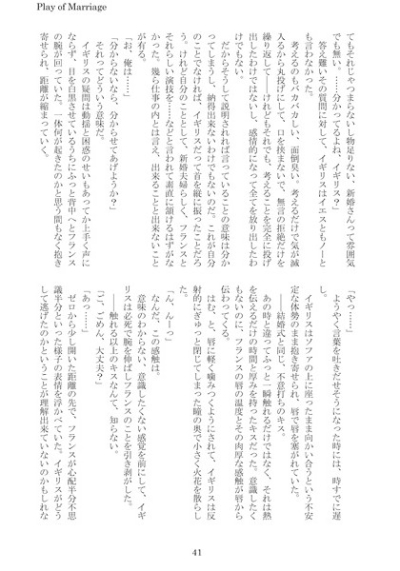 Play of Marriage
てもそれじゃつまらないし物足りない、新婚さんって雰囲気
でも無い。……分かってるよね、イギリス？」
答え難いその質問に対して、イギリスはイエスともノーと
も言わなかった。
考えるのもバカバカしい、面倒臭い、考えるだけで気が滅
入るから丸投げにして、口を挟まないで、無言の拒絶だけを
繰り返して――けれどもそれでも、考えることを完全に投げ
出したわけではないし、感情的になって全てを放り出したわ
けでもない。
だからそうして説明されれば言っていることの意味は分か
ってしまうし、納得出来ないわけでもないのだ。これが自分
のことでなければ、イギリスだって首を縦に振ったことだろ
う。けれど自分のこととして、新婚夫婦らしく、フランスと
それらしい演技を……などと言われて素直に頷けるはずがな
かった。幾ら仕事の内とは言え、出来ることと出来ないこと
が有る。
「お、俺は……」
「分からないなら、分からせてあげようか？」
それってどういう意味だ。
イギリスの疑問は動揺と困惑のせいもあってか上手く声に
ならず、目を白黒させているうちにふっと背中へとフランス
の腕が回っていた。一体何が起きたのかと思う間もなく抱き
寄せられ、距離が縮まっていく。
「やっ……」
ようやく言葉を吐きだせそうになった時には、時すでに遅
し。
イギリスはソファの上に座ったまま向かい合うという不安
定な体勢のまま抱き寄せられ、唇で唇を塞がれていた。
――結婚式と同じ、不意打ちのキス。
あの時と違ってふっと一瞬触れるだけではなく、それは熱
を伝えるだけの時間と厚みを持ったキスだった。意識したく
もないのに、フランスの唇の温度とその肉厚な感触が唇から
伝わってくる。
はむ、と、唇に軽く噛みつくようにされて、イギリスは反
射的にぎゅっと閉じてしまった瞳の奥で小さく火花を散らし
た。
「ん、んーっ」
なんだ、この感触は。
意味のわからない、意識したくない感覚を前にして、イギ
リスは必死で腕を伸ばしフランスのことを引き剥がした。
――触れる以上のキスなんて、知らない。
「ご、ごめん、大丈夫？」
「あっ……」
ゼロから少し開いた距離の先で、フランスが心配半分不思
議半分といった様子の表情を浮かべていた。イギリスがどう
して逃げたのかということが理解出来ていないのかもしれな
41